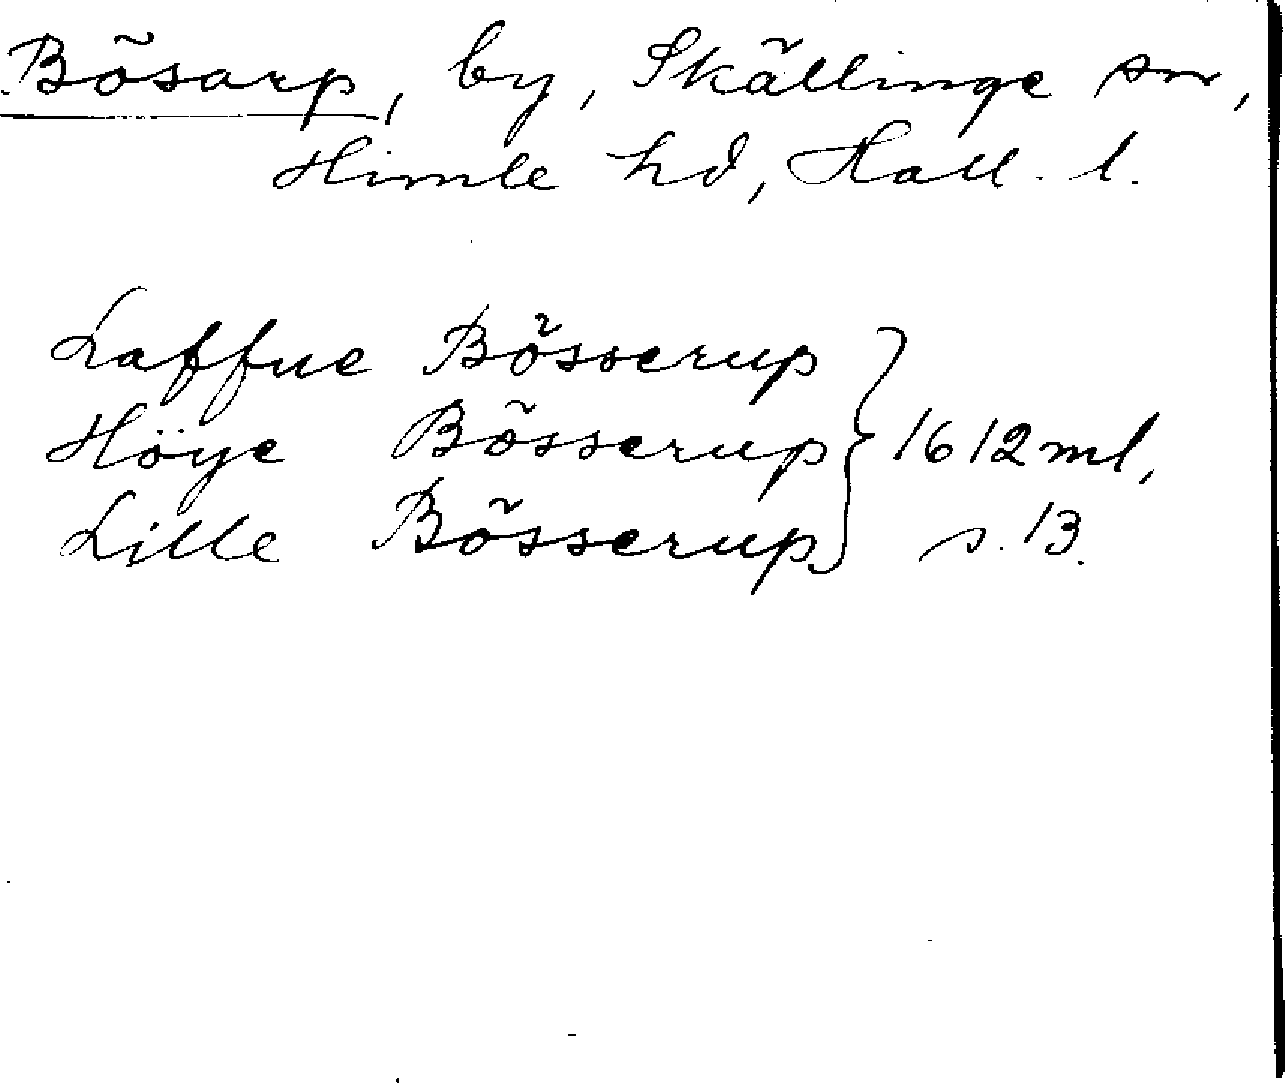 Bösarp, by, Skällinge sn,
Himle hd, Hall. l.
Laffue Bösserup
Höye Bösserup } 1612 ml,
Lille Bösserup s. 13.